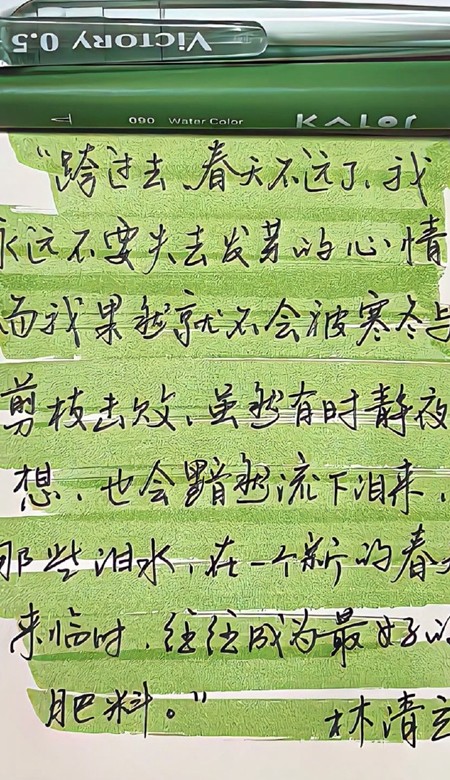 VICTORY 0.5
090 Water Color Kalor
“跨过去、春天不远了、我
永远不要失去发芽的心情
而我果然就不会被寒冬与
剪枝击败、虽然有时静夜
想、也会黯然流下泪来、
那些泪水、在一个新的春天
来临时、往往成为最好的
肥料。”
林清玄